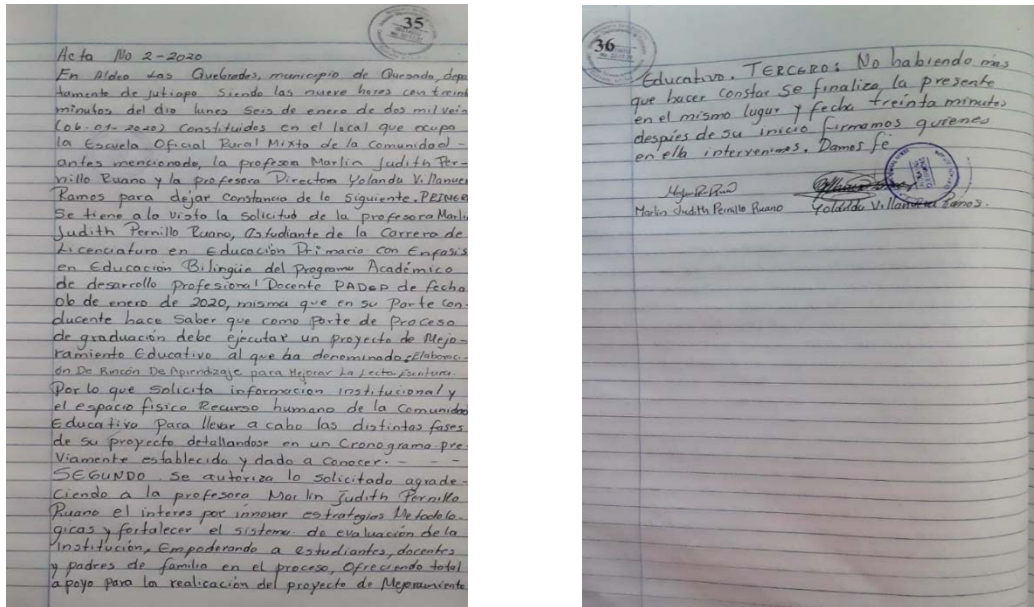 35
Acta No 2-2020
En Aldea Las Quebradas, municipio de Quesada, depa
tamento de Jutiapa siendo las nueve horas con treint
minutos del dia lunes seis de enero de dos mil vein
(06-01-2020) Constituidos en el local que ocupa
la Escuela Oficial Rural Mixta de la Comunidad -
antes mencionada, la profesora Marlin Judith Per-
nillo Ruano y la profesora Directora Yolanda Villanuev
Ramos para dejar constancia de lo siguiente. PRIMER
Se tiene a la vista la solicitud de la profesora Marli
Judith Pernillo Ruano, estudiante de la Carrera de
Licenciatura en Educación Primaria con Enfasis
en Educación Bilingüe del programa Académico
de desarrollo profesional Docente PADEP de fecha
06 de enero de 2020, misma que en su Parte con
ducente hace saber que como parte de proceso
de graduación debe ejecutar un proyecto de Mejo-
ramiento Educativo al que ha denominado: Elaboraci-
ón De Rincón De Aprendizaje para Mejorar La Lecto Escritura.
Por lo que solicita informacion institucional y
el espacio fisico Recurso humano de la Comunidad
Educativa para llevar a cabo las distintas fases
de su proyecto detallandose en un Cronograma pre
viamente establecido y dado a conocer. - - -
SEGUNDO se autoriza lo solicitado agrade-
ciendo a la profesora Marlin Judith Pernillo
Ruano el interes por innovar estrategias Metodolo-
gicas y fortalecer el sistema de evaluación de la
institución, Empoderando a estudiantes, docentes
y padres de familia en el proceso, Ofreciendo total
apoyo para la realicación del proyecto de Mejoramiento
36
Educativo. TERCERO: No habiendo mas
que hacer constar se finaliza, la presente
en el mismo lugar y fecha treinta minutos
despúes de su inicio firmamos quienes
en ella intervenimos. Damos fé
Marlin Judith Pernillo Ruano Yolanda Villanueva Ramos.